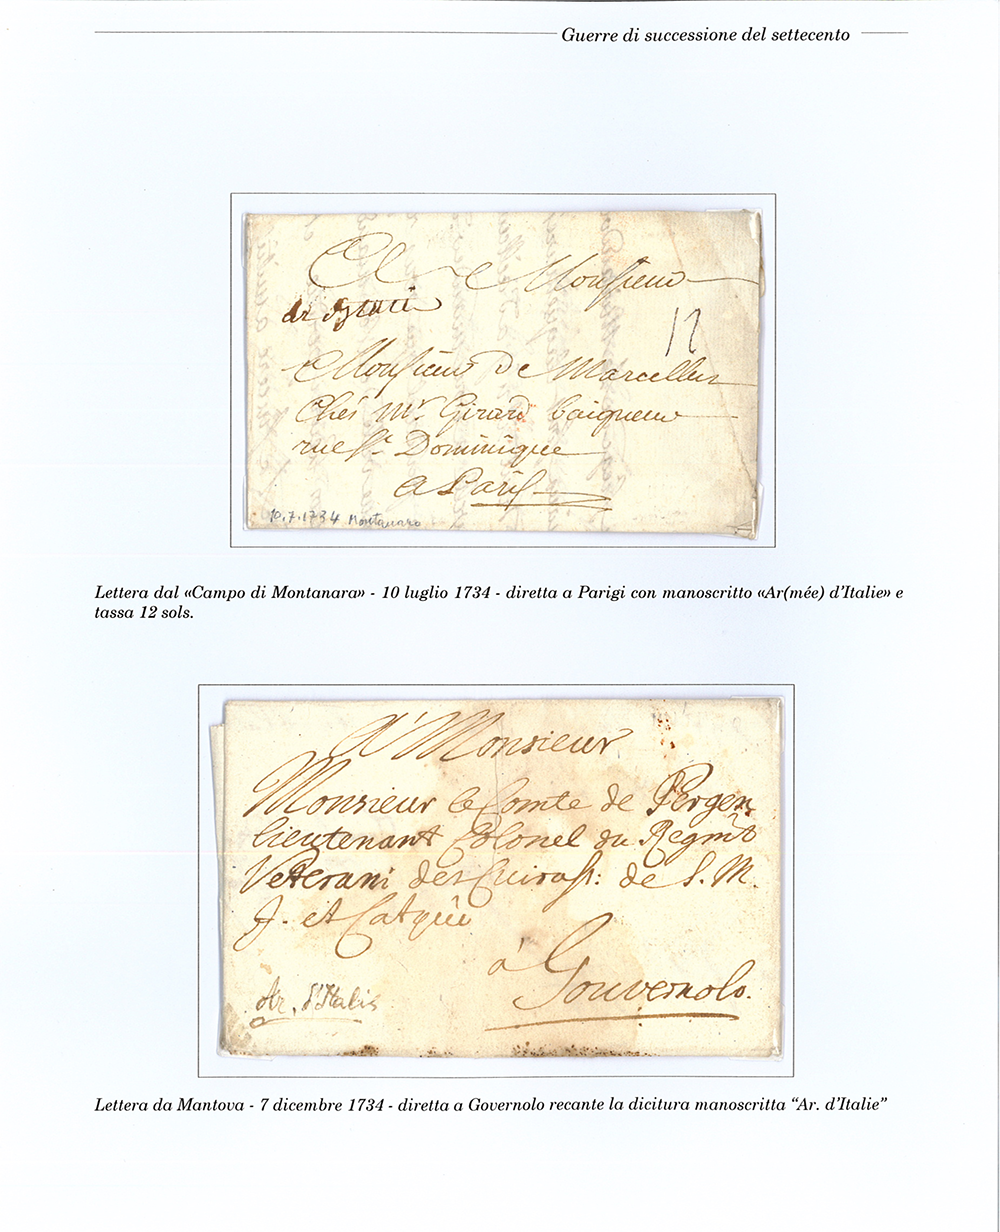 Guerre di successione del settecento
A Monsieur
ar d'Italie
12
Monsieur De Marcellus
Chés Mr. Girard baigneur
rue St. Dominique
a Paris
10.7.1734 Montanaro
Lettera dal «Campo di Montanara» - 10 luglio 1734 - diretta a Parigi con manoscritto «Ar(mée) d'Italie» e
tassa 12 sols.
A' Monsieur
Monsieur le Comte de Pergen
lieutenant Colonel du Regmt
Veterani des Cuirass: de S. M.
J. et Catque
à Gouvernolo.
Ar. d'Italie
Lettera da Mantova - 7 dicembre 1734 - diretta a Governolo recante la dicitura manoscritta “Ar. d'Italie”